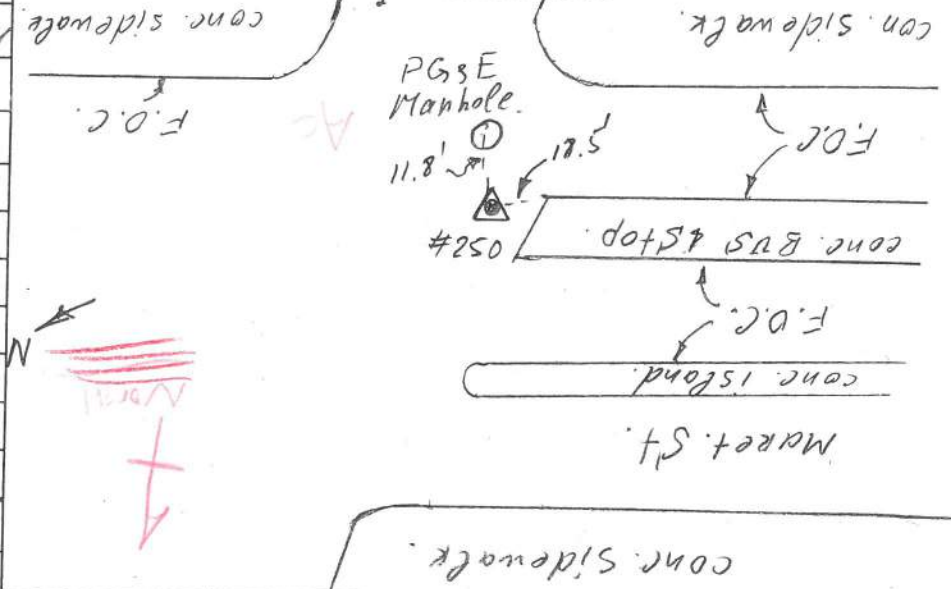 conc. sidewalk
con. sidewalk.
PG&E
Manhole.
F.O.C.
AC
F.O.C
11.8'
18.5'
#250
conc. BUS & Stop.
N
F.O.C.
North
conc. island.
Maret. St.
conc. sidewalk.